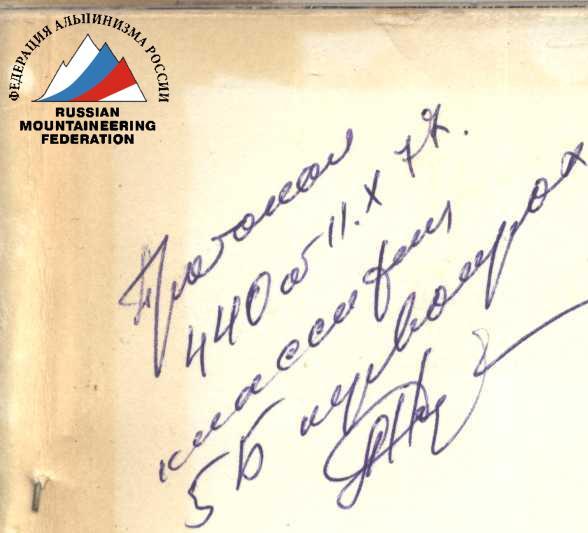 ФЕДЕРАЦИЯ АЛЬПИНИЗМА РОССИИ
RUSSIAN
MOUNTAINEERING
FEDERATION
Протокол
440 от 11.X 77.
классифиц
5Б первопрох